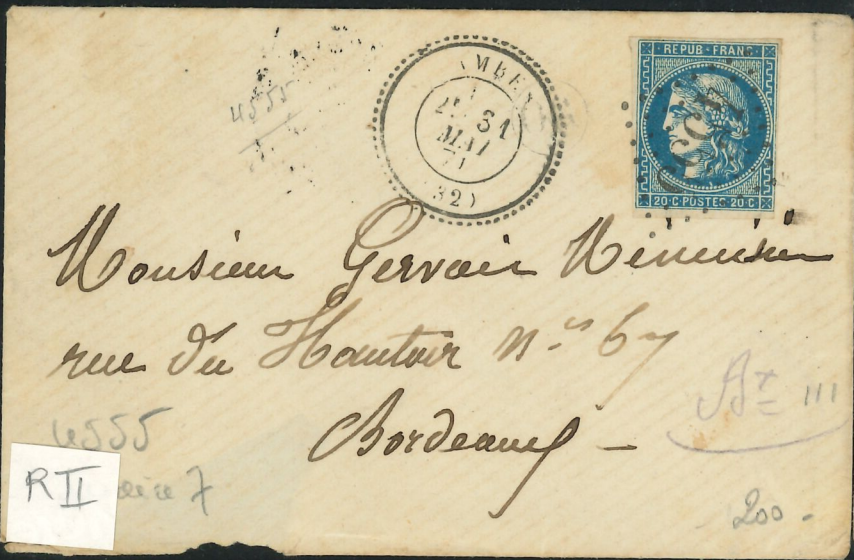 4555
AMBE
2E 31
MAI
71
(32)
REPUB · FRANC
4555
20·C·POSTES·20·C
Monsieur Gervais Menuisier
rue du Hautoir n° 67
Bordeaux –
4555
R II
7
Ax III
200 -